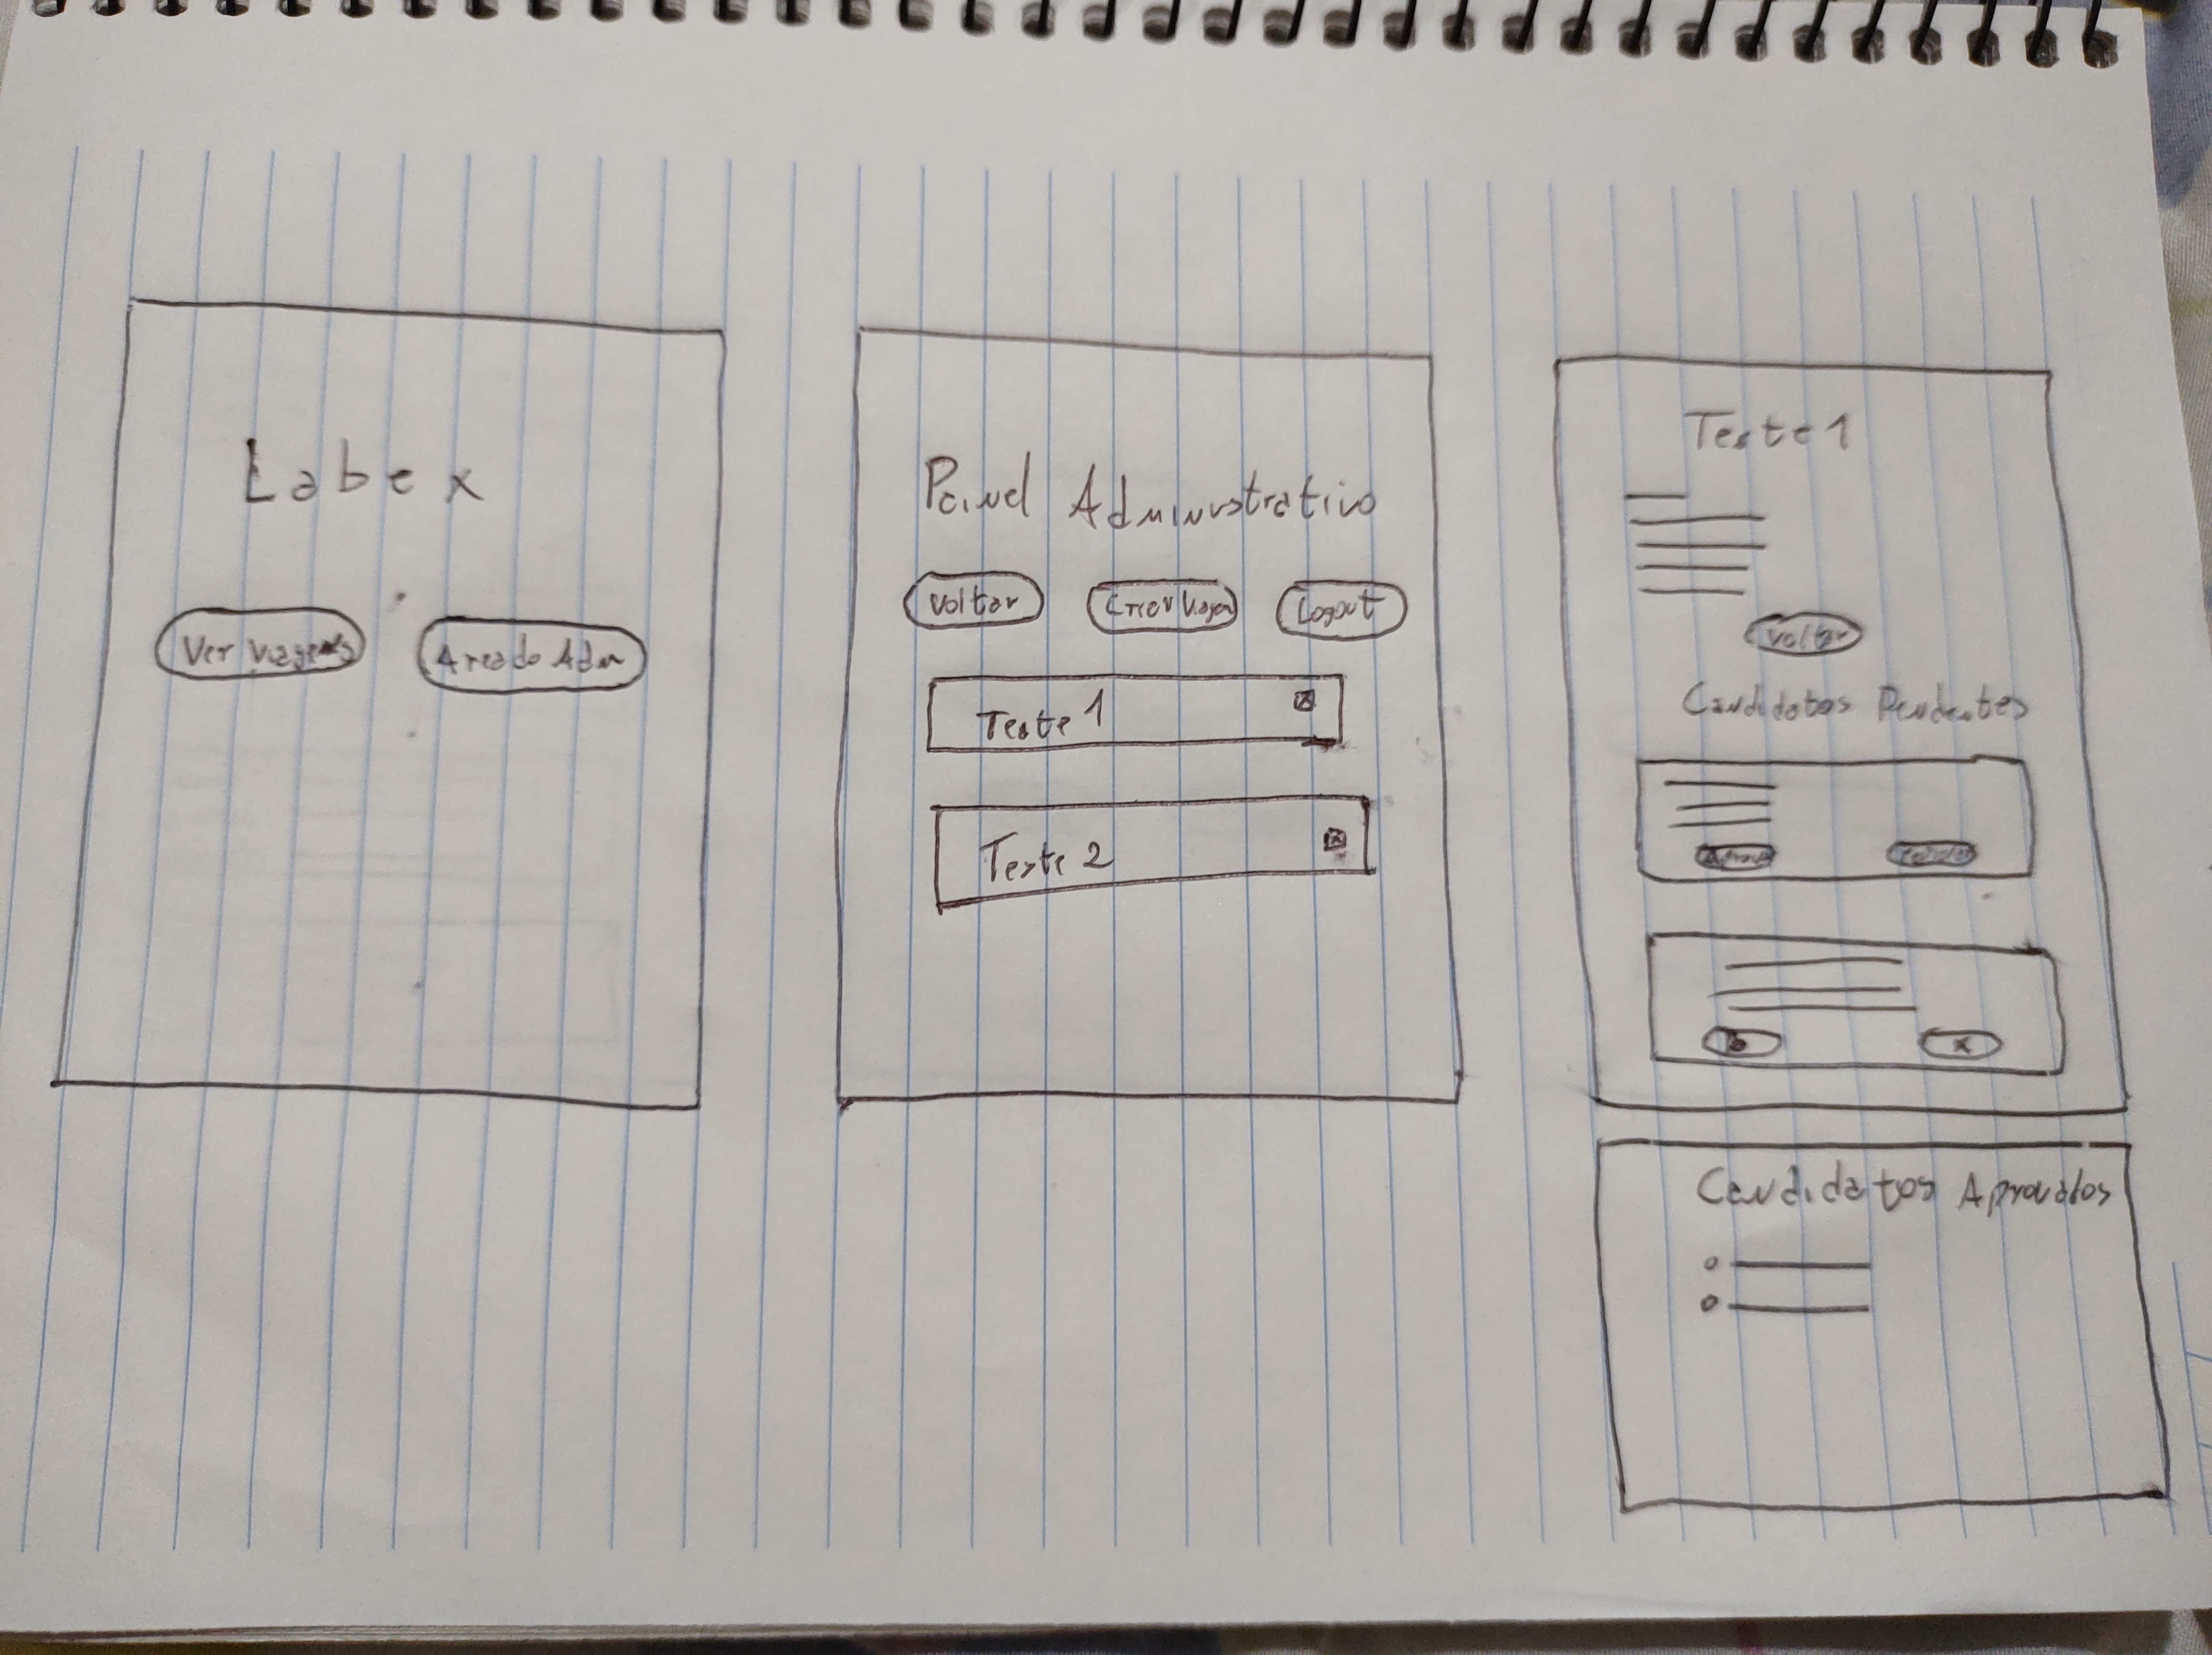 Labex
Ver Viagens
Area do Adm
Painel Administrativo
Voltar
Criar Viagem
Logout
Teste 1
Teste 2
Teste 1
Voltar
Candidatos Pendentes
Candidatos Aprovados